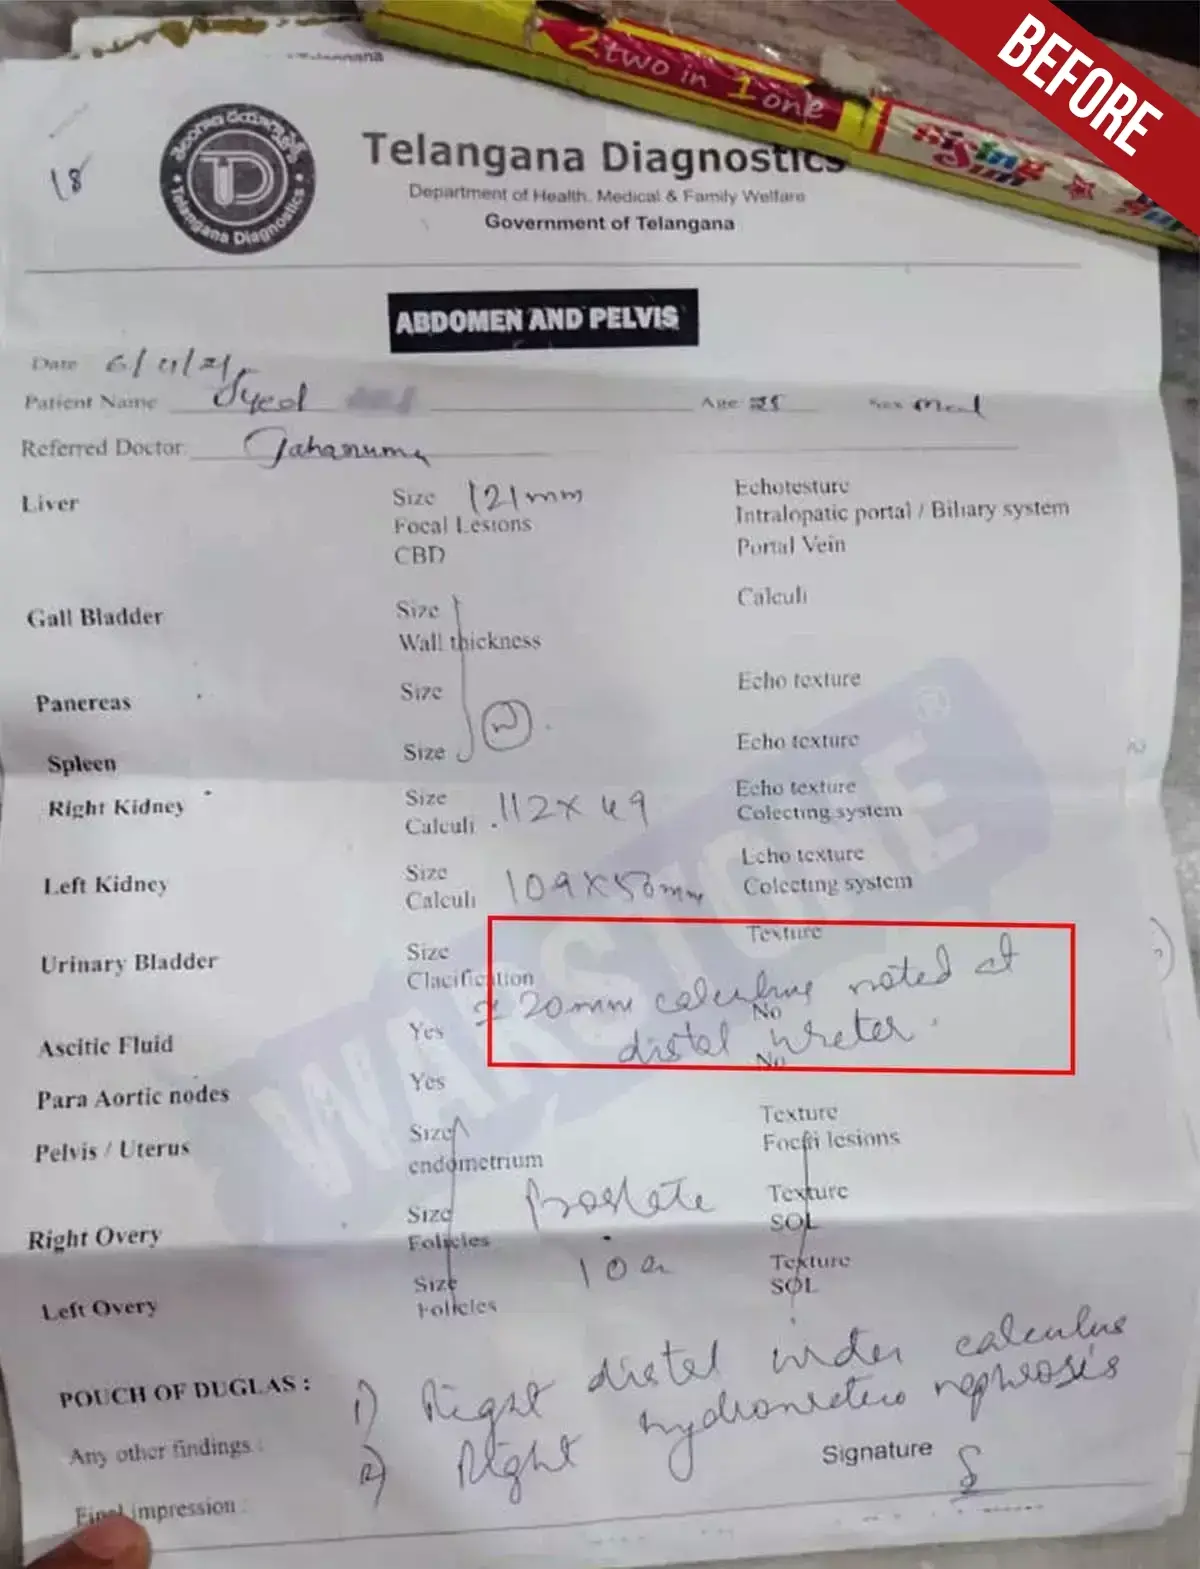 BEFORE
2 two in 1 one
Sing Sun
18
తెలంగాణ డయాగ్నోస్టిక్స్
Telangana Diagnostics
Telangana Diagnostics
Department of Health, Medical & Family Welfare
Government of Telangana
ABDOMEN AND PELVIS
Date 6/11/21
Patient Name Syed Age 28 Sex
Referred Doctor: Jahanuma
Liver Size 121mm Echotesture
Focal Lesions Intralopatic portal / Biliary system
CBD Portal Vein
Gall Bladder Size Calculi
Wall thickness
Panereas Size Echo texture
N
Spleen Size Echo texture
Right Kidney Size 112 x 49 Echo texture
Calculi Colecting system
Left Kidney Size 109 x 50mm Echo texture
Calculi Colecting system
Urinary Bladder Size Texture
Clacification
20mm calculus noted at
distal ureter.
Ascitic Fluid Yes No
Para Aortic nodes Yes No
Pelvis / Uterus Size Texture
endometrium Focal lesions
Prostate
Right Overy Size Texture
Folicles SOL
Left Overy Size Texture
Folicles SOL
WARSTONE®
POUCH OF DUGLAS : 1) Right distal calculus
Any other findings : 2) Right hydroureteronephrosis
Signature
Final impression :